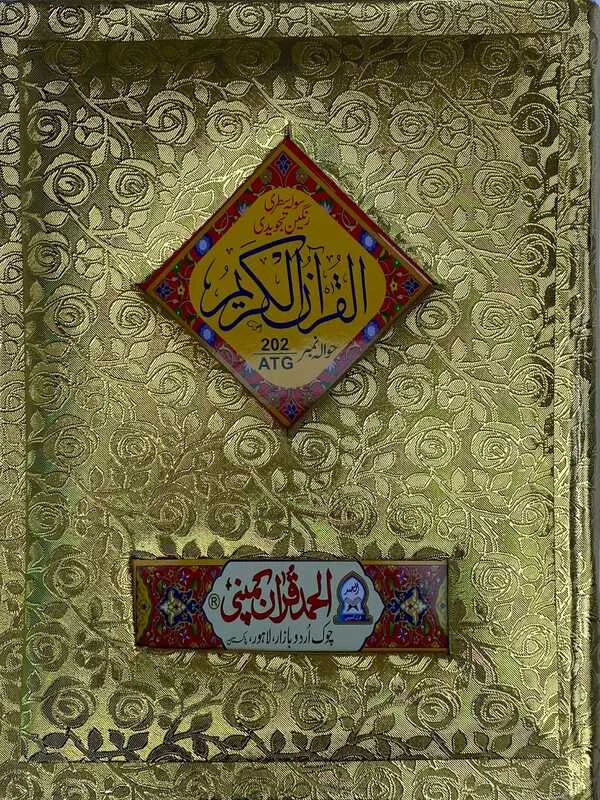 سولہ سطری
رنگین تجویدی
القرآن الکریم
حوالہ نمبر 202/ATG
الحمد قرآن کمپنی ®
چوک اُردو بازار، لاہور، پاکستان